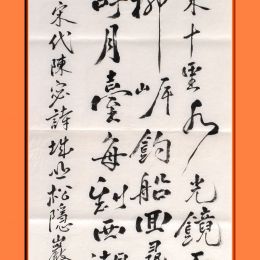 十里水光鏡
柳岸釣船回尋
時月臺每到西湖
宋代陳宓詩城山松隱巖